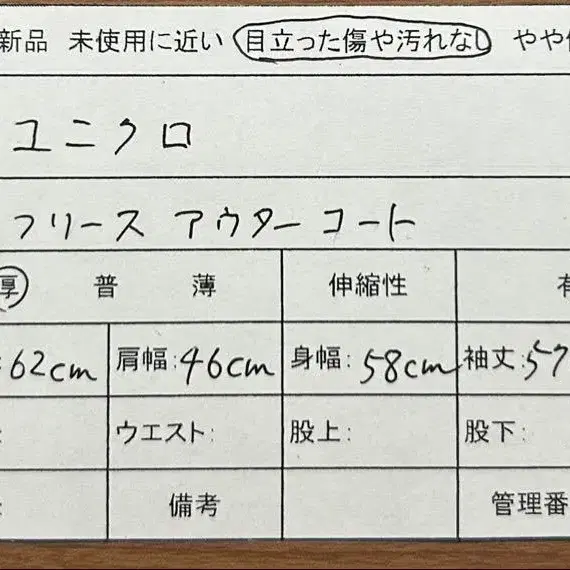 新品 未使用に近い 目立った傷や汚れなし やや
ユニクロ
フリース アウター コート
厚 普 薄 伸縮性 有
:62cm 肩幅:46cm 身幅:58cm 袖丈:57
: ウエスト: 股上: 股下:
: 備考 管理番